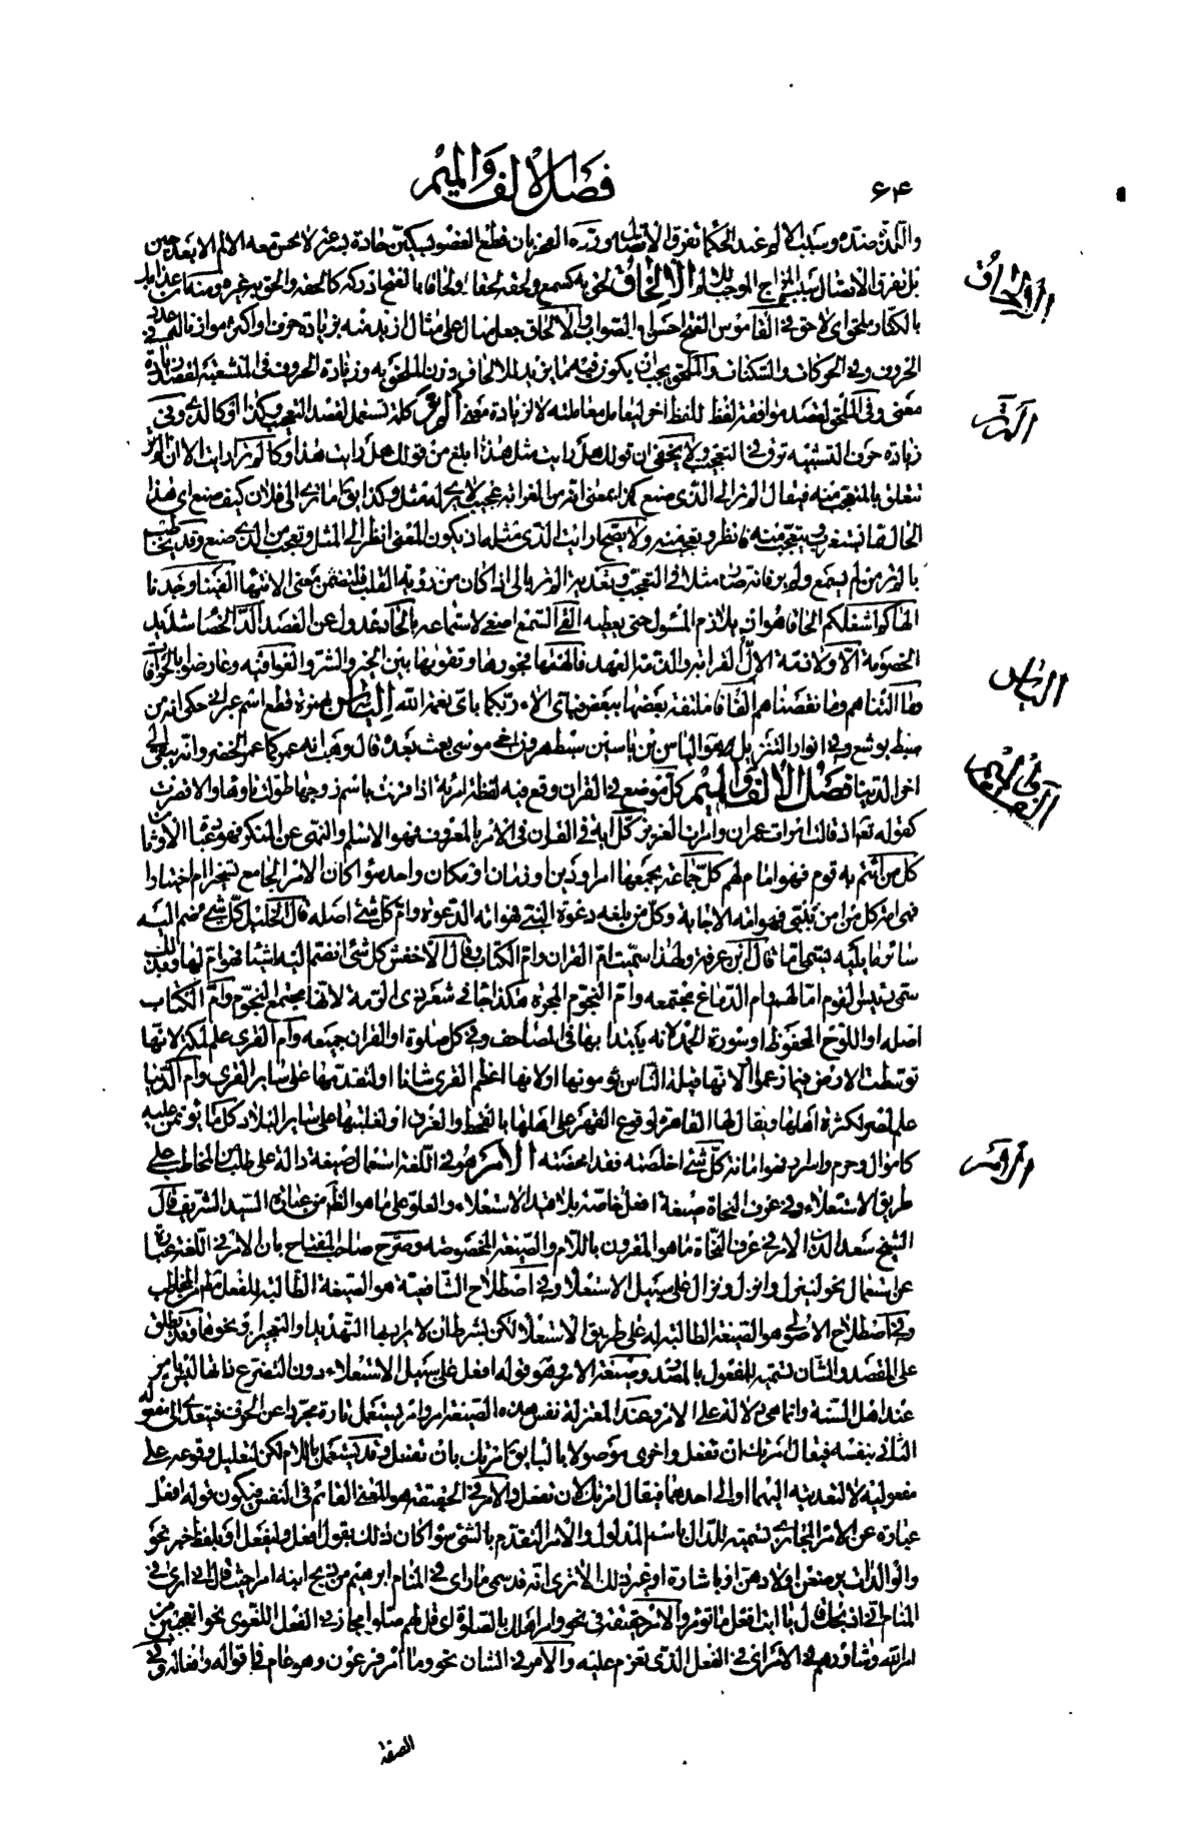 ۶۴ فصل الالف والميم
واللذة ضده وسبب الالم عند الحكماء تفرق الاتصال ورده الفخر بان قطع العضو بسكين حادة بسرعة لا يحس معه الالم الا بعد حين
بل تفرق الاتصال سبب المزاج الموجب للالم الالحاق لحق به كسمع ولحقه لحقا ولحاقا بالفتح ادركه كالحقه والحق به غيره ومنه ان عذابك
بالكفار ملحق اى لاحق فى القاموس الفتح احسن او الصواب والالحاق جعل مثال على مثال ازيد منه بزيادة حرف او اكثر موازنا له فى عدد
الحروف وفى الحركات والسكنات والملحق يجب ان يكون فيه ما يزيد للالحاق دون الملحق به وزيادة الحروف فى المنشعبة لقصد زيادة
معنى وفى الملحق لقصد موافقة لفظ للفظ آخر ليعامل معاملته لا لزيادة معنى الم تر كلمة تستعمل لقصد التعجب وكذا او كالذى وفى
زيادة حرف التشبيه ترق فى التعجب ولا يخفى ان قولك هل رايت مثل هذا ابلغ من قولك هل رايت هذا وكالم تر ارايت الا ان الم تر
تتعلق بالمتعجب منه فيقال الم تر الى الذى صنع كذا بمعنى انه من الغرابة بحيث لا يرى له مثل وكذا يقال اما ترى الى فلان كيف صنع اى هذا
الحال مما يستغرب ويتعجب منه فانظر وتعجب منه ولا يصح ارايت الذى مثله اذ يكون المعنى انظر الى المثل وتعجب من الذى صنع وقد يخاطب
بالم تر من لم يسمع ولم ير فانه صار مثلا فى التعجب وتعدية الم تر بالى اذا كان من رؤية القلب لتضمن معنى الانتهاء الفينا وجدنا
الهاكم اشغلكم الحافا هو ان يلازم المسئول حتى يعطيه القى السمع اصغى لاستماعه بالحاد عدول عن القصد الد الخصام شديد
الخصومة الا ولا ذمة الال القرابة والذمة العهد فالهمها فجورها وتقواها بين الخير والشر والقوا فيه وعارضوا بالخرافات
وما التناهم وما نقصناهم الفافا ملتفة بعضها ببعض فباى آلاء ربكما باى نعمة الله الياس بهمزة قطع اسم عبرانى حكى انه من
سبط يوشع وفى انوار التنزيل هو الياس بن ياسين سبط هرون اخى موسى بعث بعده قال وهب انه عمر كما عمر الخضر وانه يبقى الى
آخر الدنيا فصل الالف والميم كل موضع فى القران وقع فيه لفظة امراة اذا قرنت باسم زوجها طولت تاؤها والا قصرت
كقوله تعالى اذ قالت امرات عمران وامرات العزيز كل اية فى القران فى الامر بالمعروف فهو الاسلام والنهى عن المنكر فهو عبادة الاوثان
كل من ائتم به قوم فهو امام لهم كل جماعة يجمعها امر او دين او زمان او مكان واحد سواء كان الامر الجامع تسخيرا ام اختيارا
فهى امة كل من آمن بنبى فهو امة الاجابة وكل من بلغه دعوة النبى فهو امة الدعوة وام كل شئ اصله قال الخليل كل شئ ضم اليه
سائر ما يليه يسمى اما قال ابن عرفة ولهذا سميت ام القران وام الكتاب وقال الاخفش كل شئ انضم اليه اشياء فهو ام لها وبذلك
سمى رئيس القوم اما لهم وام الدماغ مجتمعه وام النجوم المجرة هكذا جاء فى شعر ذى الرمة لانها مجتمع النجوم وام الكتاب
اصله او اللوح المحفوظ او سورة الحمد لانه يبتدا بها فى المصاحف وفى كل صلوة او القران جميعه وام القرى علم لمكة لانها
توسطت الارض فيما زعموا او لانها قبلة الناس يؤمونها او لانها اعظم القرى شانا او لتقدمها على سائر القرى وام الدنيا
علم لمصر لكثرة اهلها ويقال لها القاهرة لوقوع القهر على اهلها بالقحط والغرق او لغلبتها على سائر البلاد كل ما يؤتمن عليه
كاموال وحرم واسرار فهو امانة كل شئ اخلصته فقد امحضته الامر هو فى اللغة استعمال صيغة دالة على طلب من المخاطب على
طريق الاستعلاء وفى عرف النحاة صيغة افعل خاصة بلا قيد الاستعلاء والعلو على ما هو الظاهر من عبارة السيد الشريف قال
الشيخ سعد الدين الامر فى عرف النحاة ما هو المقرون باللام والصيغة المخصوصة وصرح صاحب المفتاح بان الامر فى اللغة عبارة
عن استعمال نحو لينزل وانزل ونزال على سبيل الاستعلاء وفى اصطلاح الشافعية هو الصيغة الطالبة للفعل مطلقا من المخاطب
وفى اصطلاح الاصولى هو الصيغة الطالبة له على طريق الاستعلاء لكن بشرط ان لا يراد بها التهديد او التعجيز او نحوهما وقد يطلق
على المقصد والشان تسمية للمفعول بالمصدر وصيغة الامر وهو قوله افعل على سبيل الاستعلاء دون التضرع ذاتها ليس بامر
عند اهل السنة وانما هى دلالة على الامر وعند المعتزلة نفس هذه الصيغة امر وامر يستعمل تارة مجردا عن الحرف فيتعدى الى مفعوله
الثانى بنفسه فيقال امرتك ان تفعل واخرى موصولا بالباء يقال امرتك بان تفعل وقد يستعمل باللام لكن لتعليل وقوعه على
مفعوليه لا لتعديته اليهما او الى احدهما فيقال امرتك لان تفعل والامر فى الحقيقة هو المعنى القائم فى النفس فيكون قوله افعل
عبارة عن الامر المجازى تسمية للدال باسم المدلول والامر التقدم بالشئ سواء كان ذلك بقول افعل وليفعل او بلفظ خبر نحو
والوالدات يرضعن اولادهن او باشارة او غير ذلك الا ترى انه قد سمى ما راى فى المنام ابرهيم من ذبح ابنه امرا حيث قال انى ارى فى
المنام انى اذبحك قال يا ابت افعل ما تؤمر والامر حقيقة فى نحو وامر اهلك بالصلوة اى قل لهم صلوا مجاز فى الفعل اللغوى نحو اتعجبين من
امر الله وشاورهم فى الامر اى فى الفعل الذى تعزم عليه والامر فى الشان نحو وما امر فرعون وهو عام فى اقواله وافعاله وفى
الالحاق
الم تر
الياس
الالف والميم
الامر
الصفة